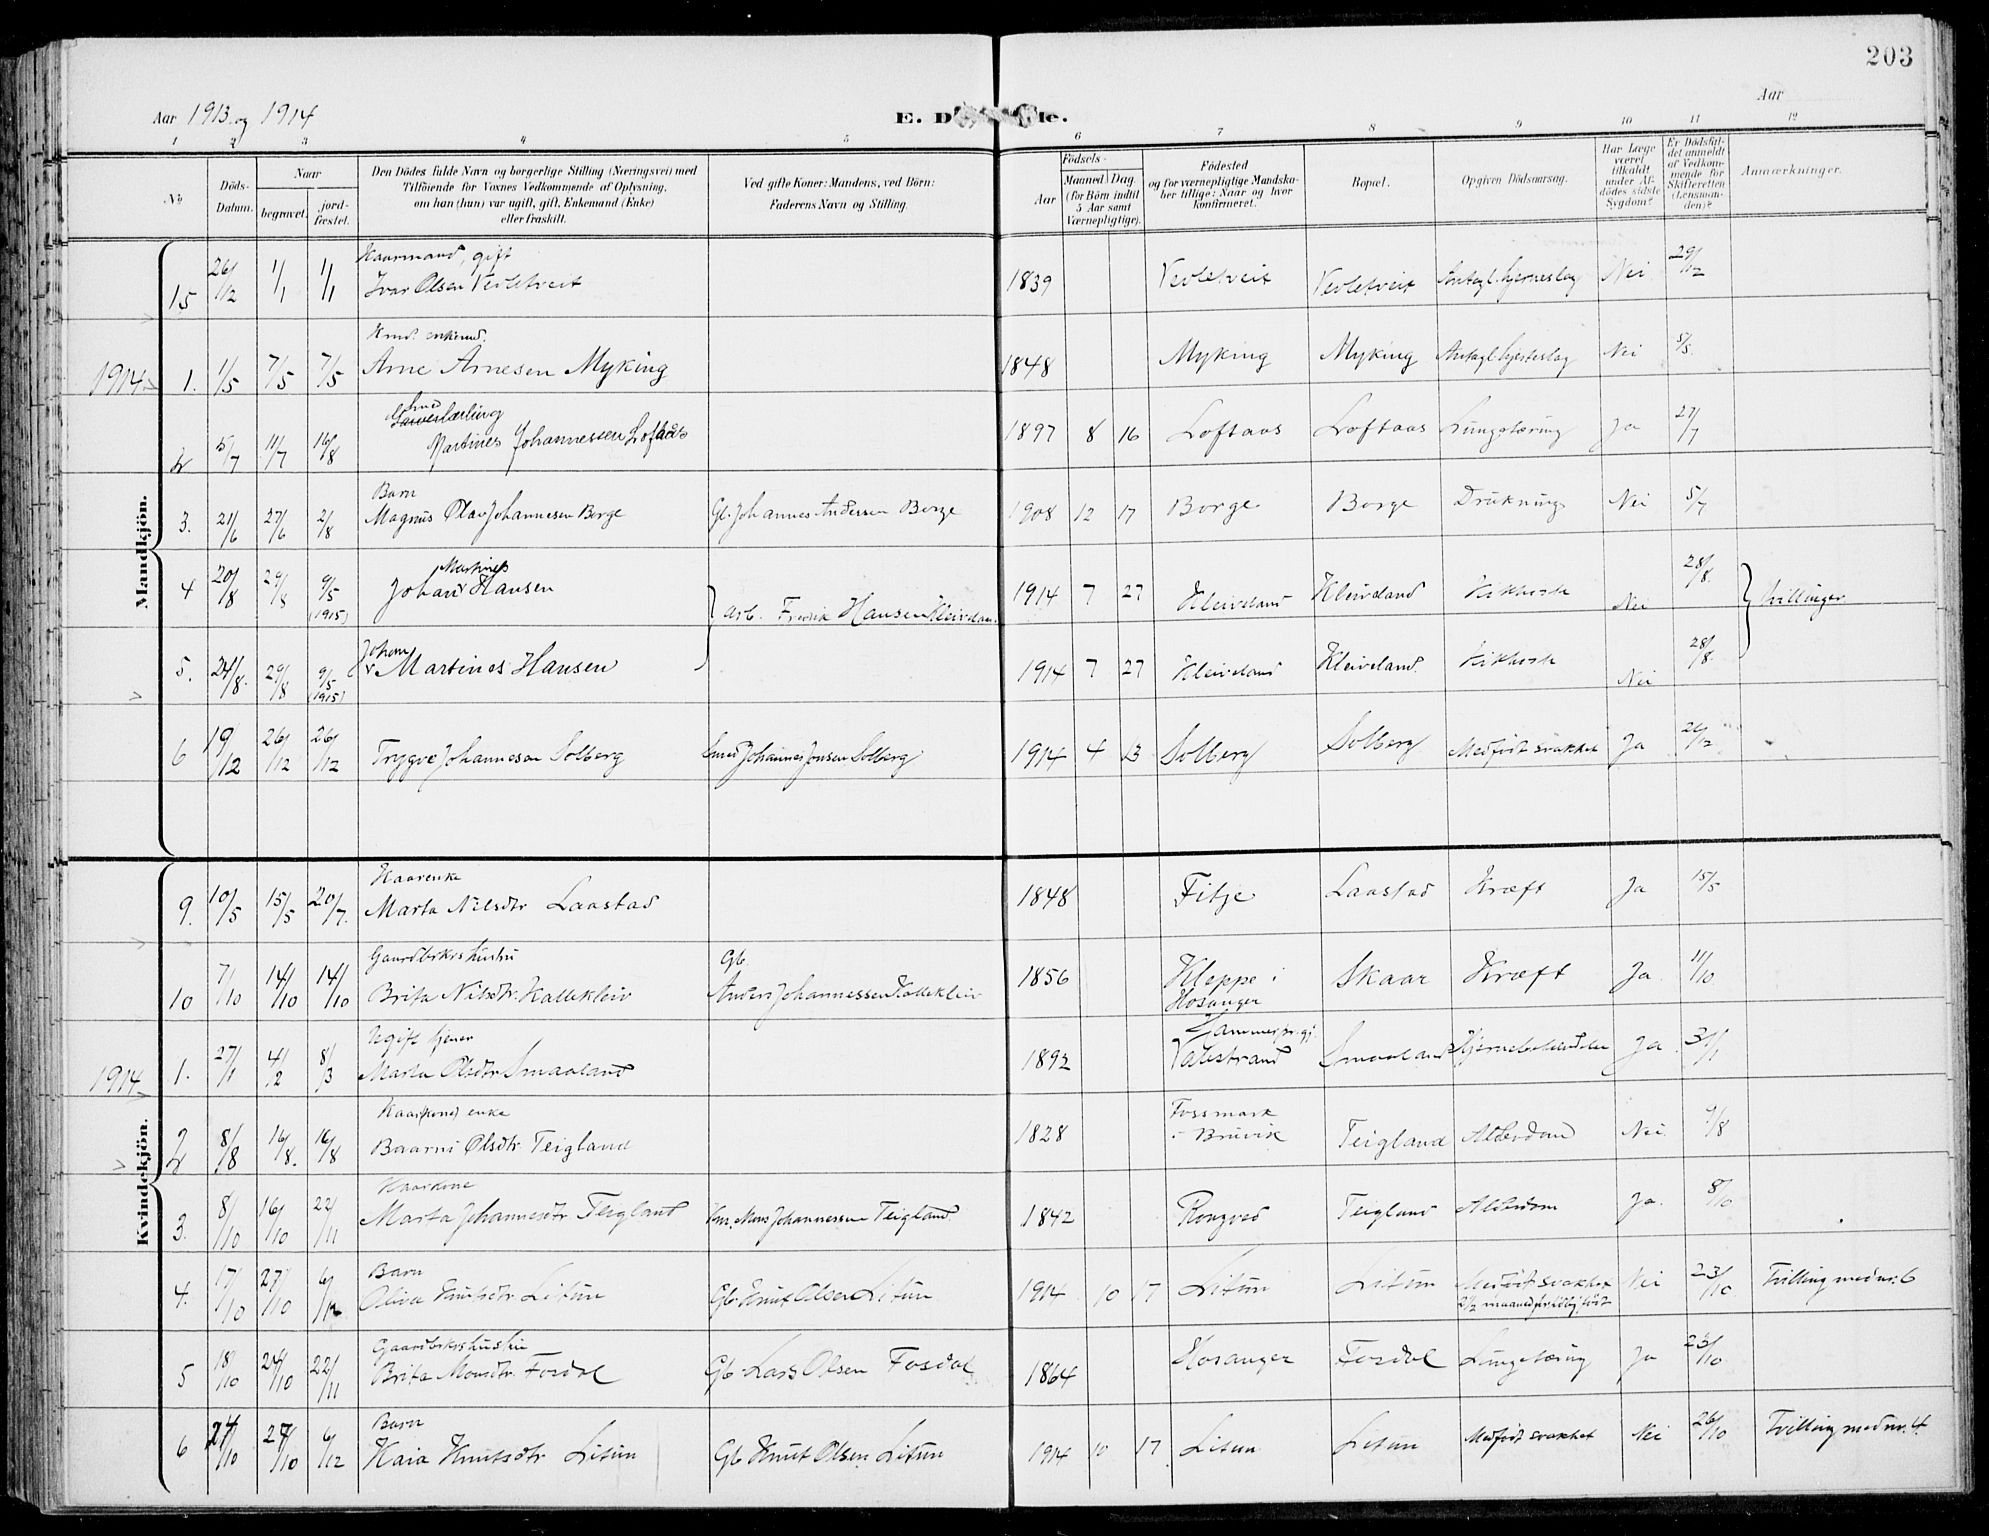 203
Aar 1913 og 1914
E. D de.
Aar
1 2 3 4 5 6 7 8 9 10 11 12
№
Döds-Datum.
Naar
begravet.
jord-fæstet.
Den Dödes fulde Navn og borgerlige Stilling (Næringsvei) med
Tilföiende for Voxnes Vedkommende af Oplysning,
om han (hun) var ugift, gift, Enkemand (Enke)
eller fraskilt.
Ved gifte Koner: Mandens, ved Börn:
Faderens Navn og Stilling.
Födsels-
Aar
Maaned Dag
(for Börn indtil
5 Aar samt
Værnepligtige).
Födested
og for værnepligtige Mandska-
ber tillige: Naar og hvor
konfirmeret.
Bopæl.
Opgiven Dödsaarsag.
Har Læge
været
tilkaldt
under Af-
dödes sidste
Sygdom?
Er Dödsfal-
det anmeldt
af Vedkom-
mende for
Skifteretten
(Lensman-
den)?
Anmærkninger.
Mandkjön.
Kaarmand, gift
15 26/12 1/1 1/1 Ivar Olsen Vevletveit 1839 Vevletveit Vevletveit Antagl. hjerneslag Nei 29/12
1914 1. 1/5 7/5 7/5 Arne Arnesen Myking 1848 Myking Myking Antagl. hjerteslag Nei 5/5
Smed
2 5/7 11/7 16/8 Martines Johannessen Loftaas 1897 8 16 Loftaas Loftaas Lungetæring Ja 27/7
Barn
3. 21/6 27/6 2/8 Magnus Olav Johannesen Borge Gb. Johannes Andersen Borge 1908 12 17 Borge Borge Drukning Nei 5/7
Martines
4 20/8 29/8 9/5 (1915) Johan Hansen arb. Fredrik Hansen Kleiveland 1914 7 27 Kleiveland Kleiveland Kikhoste Nei 28/8. tvillinger
Johan
5. 24/8. 29/8 9/5 (1915) Martines Hansen 1914 7 27 Kleiveland Kleiveland. Kikhoste Nei 28/8.
6 19/12 26/12 26/12 Trygve Johannesen Solberg Smed Johannes Jonsen Solberg 1914 4 13 Solberg Solberg Medfödt svakhet Ja 26/12
Kvindekjön.
Kaarenke
9. 10/5 15/5 20/7. Marta Nilsdtr Laastad 1848 Fitje Laastad Kræft Ja 15/5
Gaardbrkrs hustru
10 7/10 14/10 14/10 Brita Nilsdtr. Kallekleiv Gb. Anders Johannessen Kallekleiv 1856 Kleppe i Hosanger Skaar Kræft Ja 11/10
Ugift tjener
1914 1. 27/1 4/2 8/3 Marta Olsdtr Smaaland 1892 Hammer pr.gj. Valestrand Smaaland Ja 31/1
Kaar(kone) enke
2 8/8 16/8. 16/8 Baarni Olsdtr. Teigland 1828 Fossmark i Bruvik Teigland Alderdom Nei 9/8
Kaarkone
3. 8/10 16/10 22/11 Marta Johannesdtr Teigland Km. Mons Johannessen Teigland 1842 Rongved Teigland Alderdom Ja. 8/10
Barn
4. 17/10 27/10 6/12 Oliva Knutsdtr. Litun Gb. Knut Olsen Litun 1914 10 17 Litun Litun Medfödt svakhet Nei 23/10 Tvilling med nr. 6
2½ maaned for tidlig födt
Gaardbrkrs hustru
5 18/10 24/10 22/11 Brita Monsdtr. Fosdal Gb. Lars Olsen Fosdal 1864 Hosanger Fosdal Lungetæring Ja 23/10
Barn
6 24/10 27/10 6/12 Kaia Knutsdtr Litun Gb Knut Olsen Litun 1914 10 17 Litun Litun Medfödt svakhet Nei 26/10 Tvilling med nr. 4.